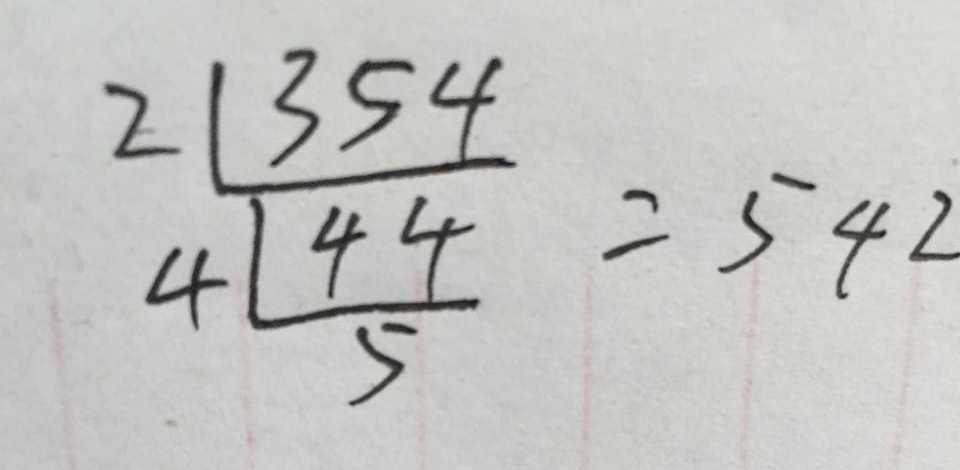 2 354
4 44 = 542
5